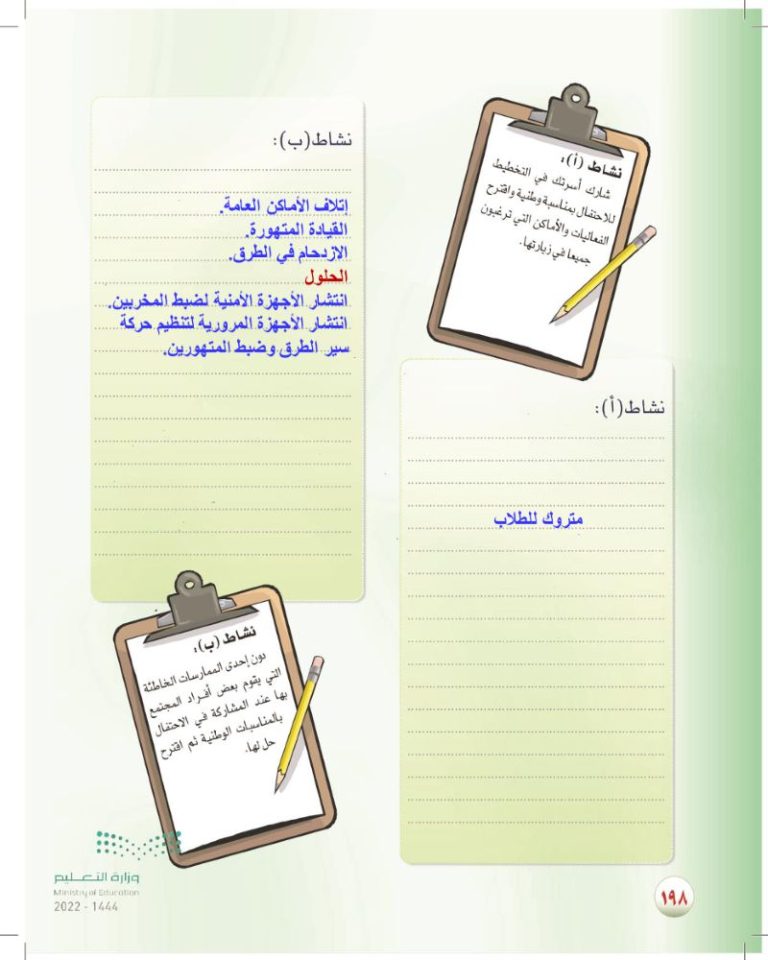 نشاط (أ):
شارك أسرتك في التخطيط
للاحتفال بمناسبة وطنية واقترح
الفعاليات والأماكن التي ترغبون
جميعا في زيارتها.
نشاط(أ):
متروك للطلاب
نشاط(ب):
إتلاف الأماكن العامة.
القيادة المتهورة.
الازدحام في الطرق.
الحلول
انتشار الأجهزة الأمنية لضبط المخربين.
انتشار الأجهزة المرورية لتنظيم حركة
سير الطرق وضبط المتهورين.
نشاط (ب):
دون إحدى الممارسات الخاطئة
التي يقوم بعض أفراد المجتمع
بها عند المشاركة في الاحتفال
بالمناسبات الوطنية ثم اقترح
حل لها.
وزارة التعليم
Ministry of Education
2022 - 1444
١٩٨